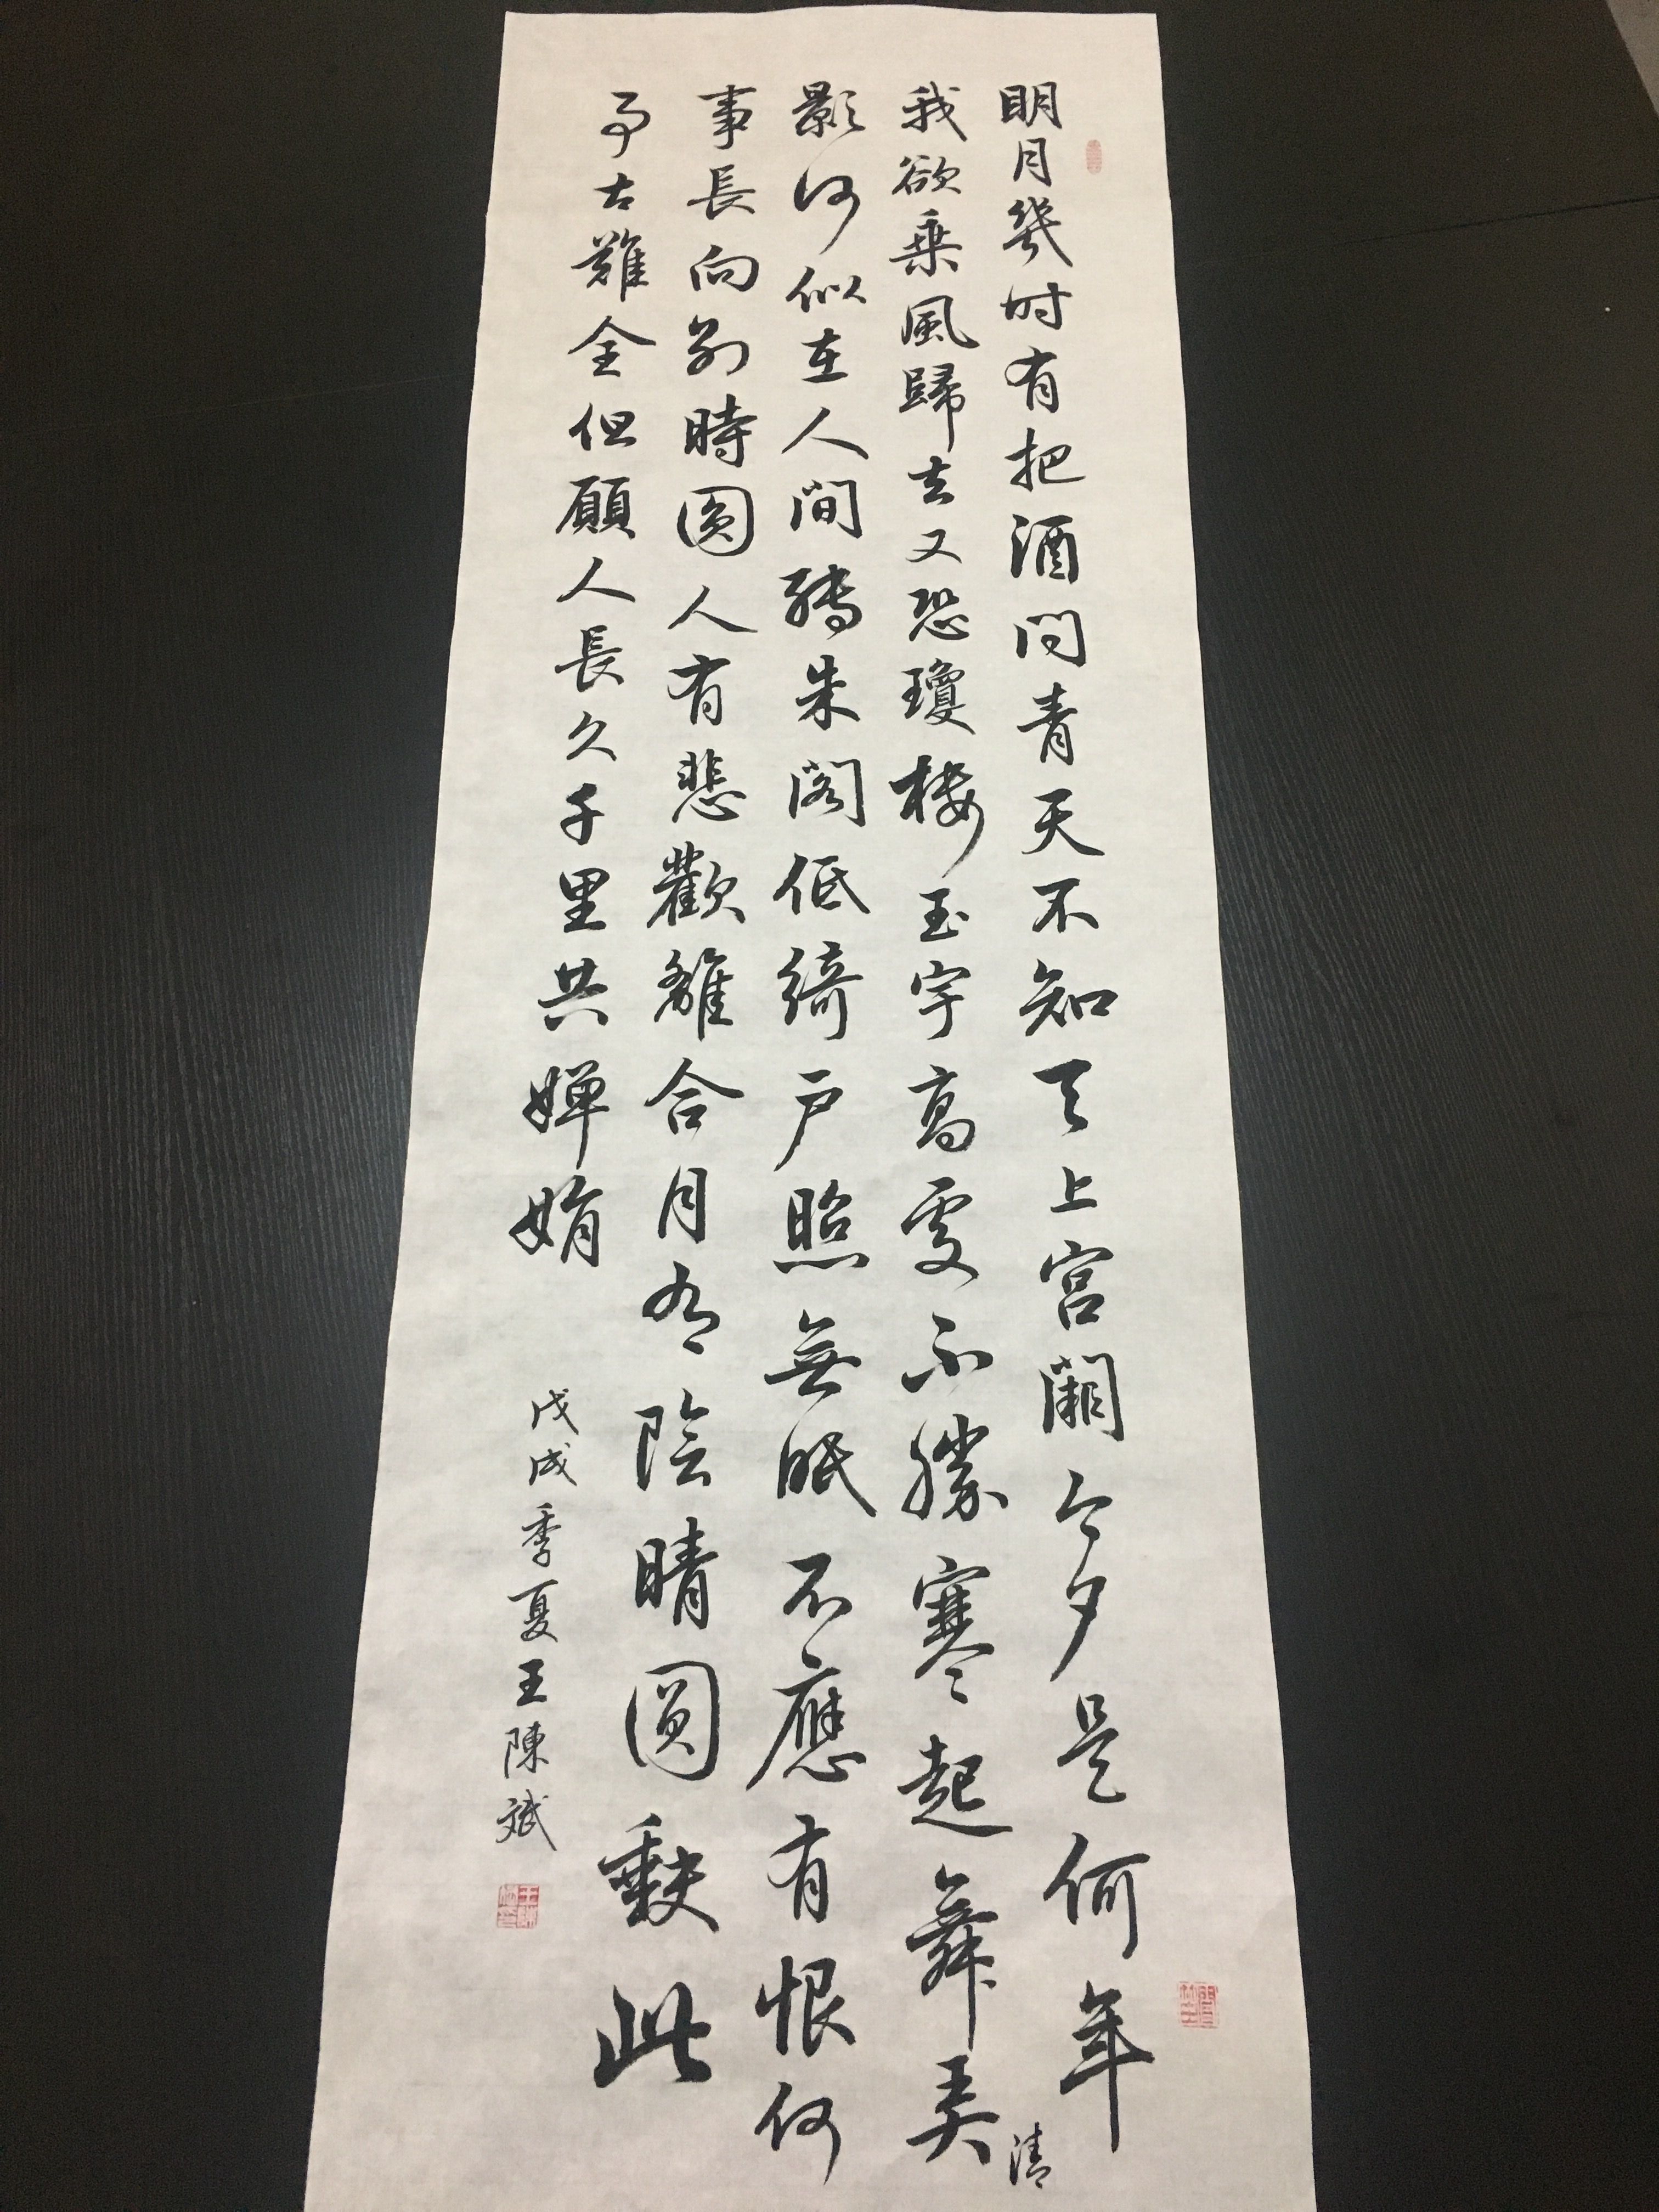 明月幾时有把酒问青天不知天上宫闕今夕是何年
我欲乘風歸去又恐瓊楼玉宇高處不勝寒起舞弄清
影何似在人间轉朱阁低綺户照無眠不應有恨何
事長向别時圆人有悲歡離合月有陰晴圆缺此
事古難全但願人長久千里共婵娟
戊戌季夏王陳斌